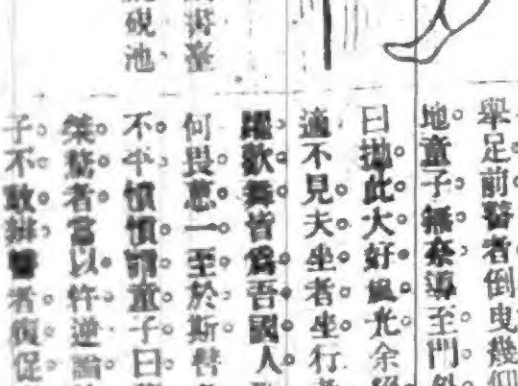 硯池
舉足前瞽者倒曳幾仰
地童子無奈導至門外
曰拋此大好風光余
適不見夫坐者坐行
躍歡舞皆爲吾國人
何畏葸一至於斯瞽
不平憤憤謂童子曰
桀驁者當以忤逆論
子不敢辯瞽者復促